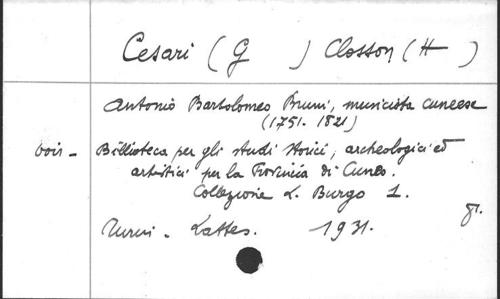 Cesari (G ) Closson (H )
Antonio Bartolomeo Bruni, musicista cuneese
(1751. 1821)
voir - Biblioteca per gli studi storici, archeologici ed
artistici per la Provincia di Cuneo.
Collezione L. Burgo 1.
Turin. Lattes. 1931.